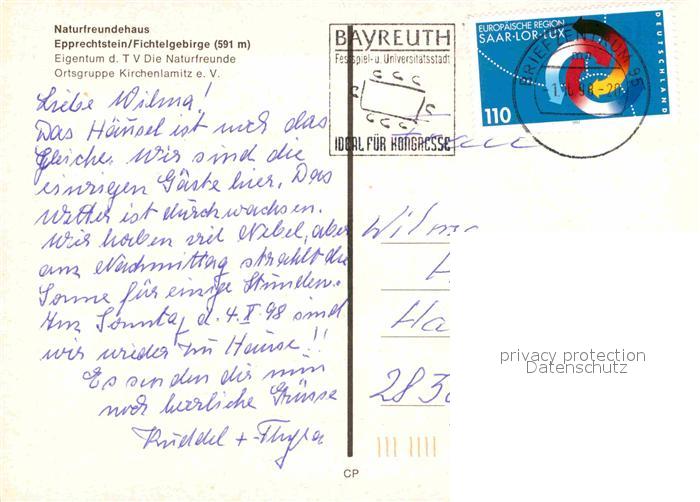 Naturfreundehaus
Epprechtstein/Fichtelgebirge (591 m)
Eigentum d. T V Die Naturfreunde
Ortsgruppe Kirchenlamitz e. V.
Liebe Wilma!
Das Häusel ist noch das
gleiche. Wir sind die
einzigen Gäste hier. Das
Wetter ist durchwachsen.
Wir haben viel Nebel, aber
am Nachmittag strahlt die
Sonne für einige Stunden.
Am Sonntag d. 4.X.98 sind
wir wieder zu Hause!!
Es senden dir nun
noch herzliche Grüsse
Ruddel + Thyra
BAYREUTH
Festspiel- u. Universitätsstadt
IDEAL FÜR KONGRESSE
EUROPÄISCHE REGION
SAAR-LOR-LUX
DEUTSCHLAND
110
BRIEFZENTRUM 95
Frau
Wilm
H
Ha
283
privacy protection
Datenschutz
CP